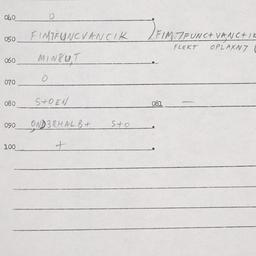 040 0
050 FIM7FUNCVANCIK )FIM.7FUNCTVANCTIK
FLEKT OPLAXN7
060 MINEUT
070 0
080 S+OEN 081 —
090 ONDERHALB+ S+O
100 +